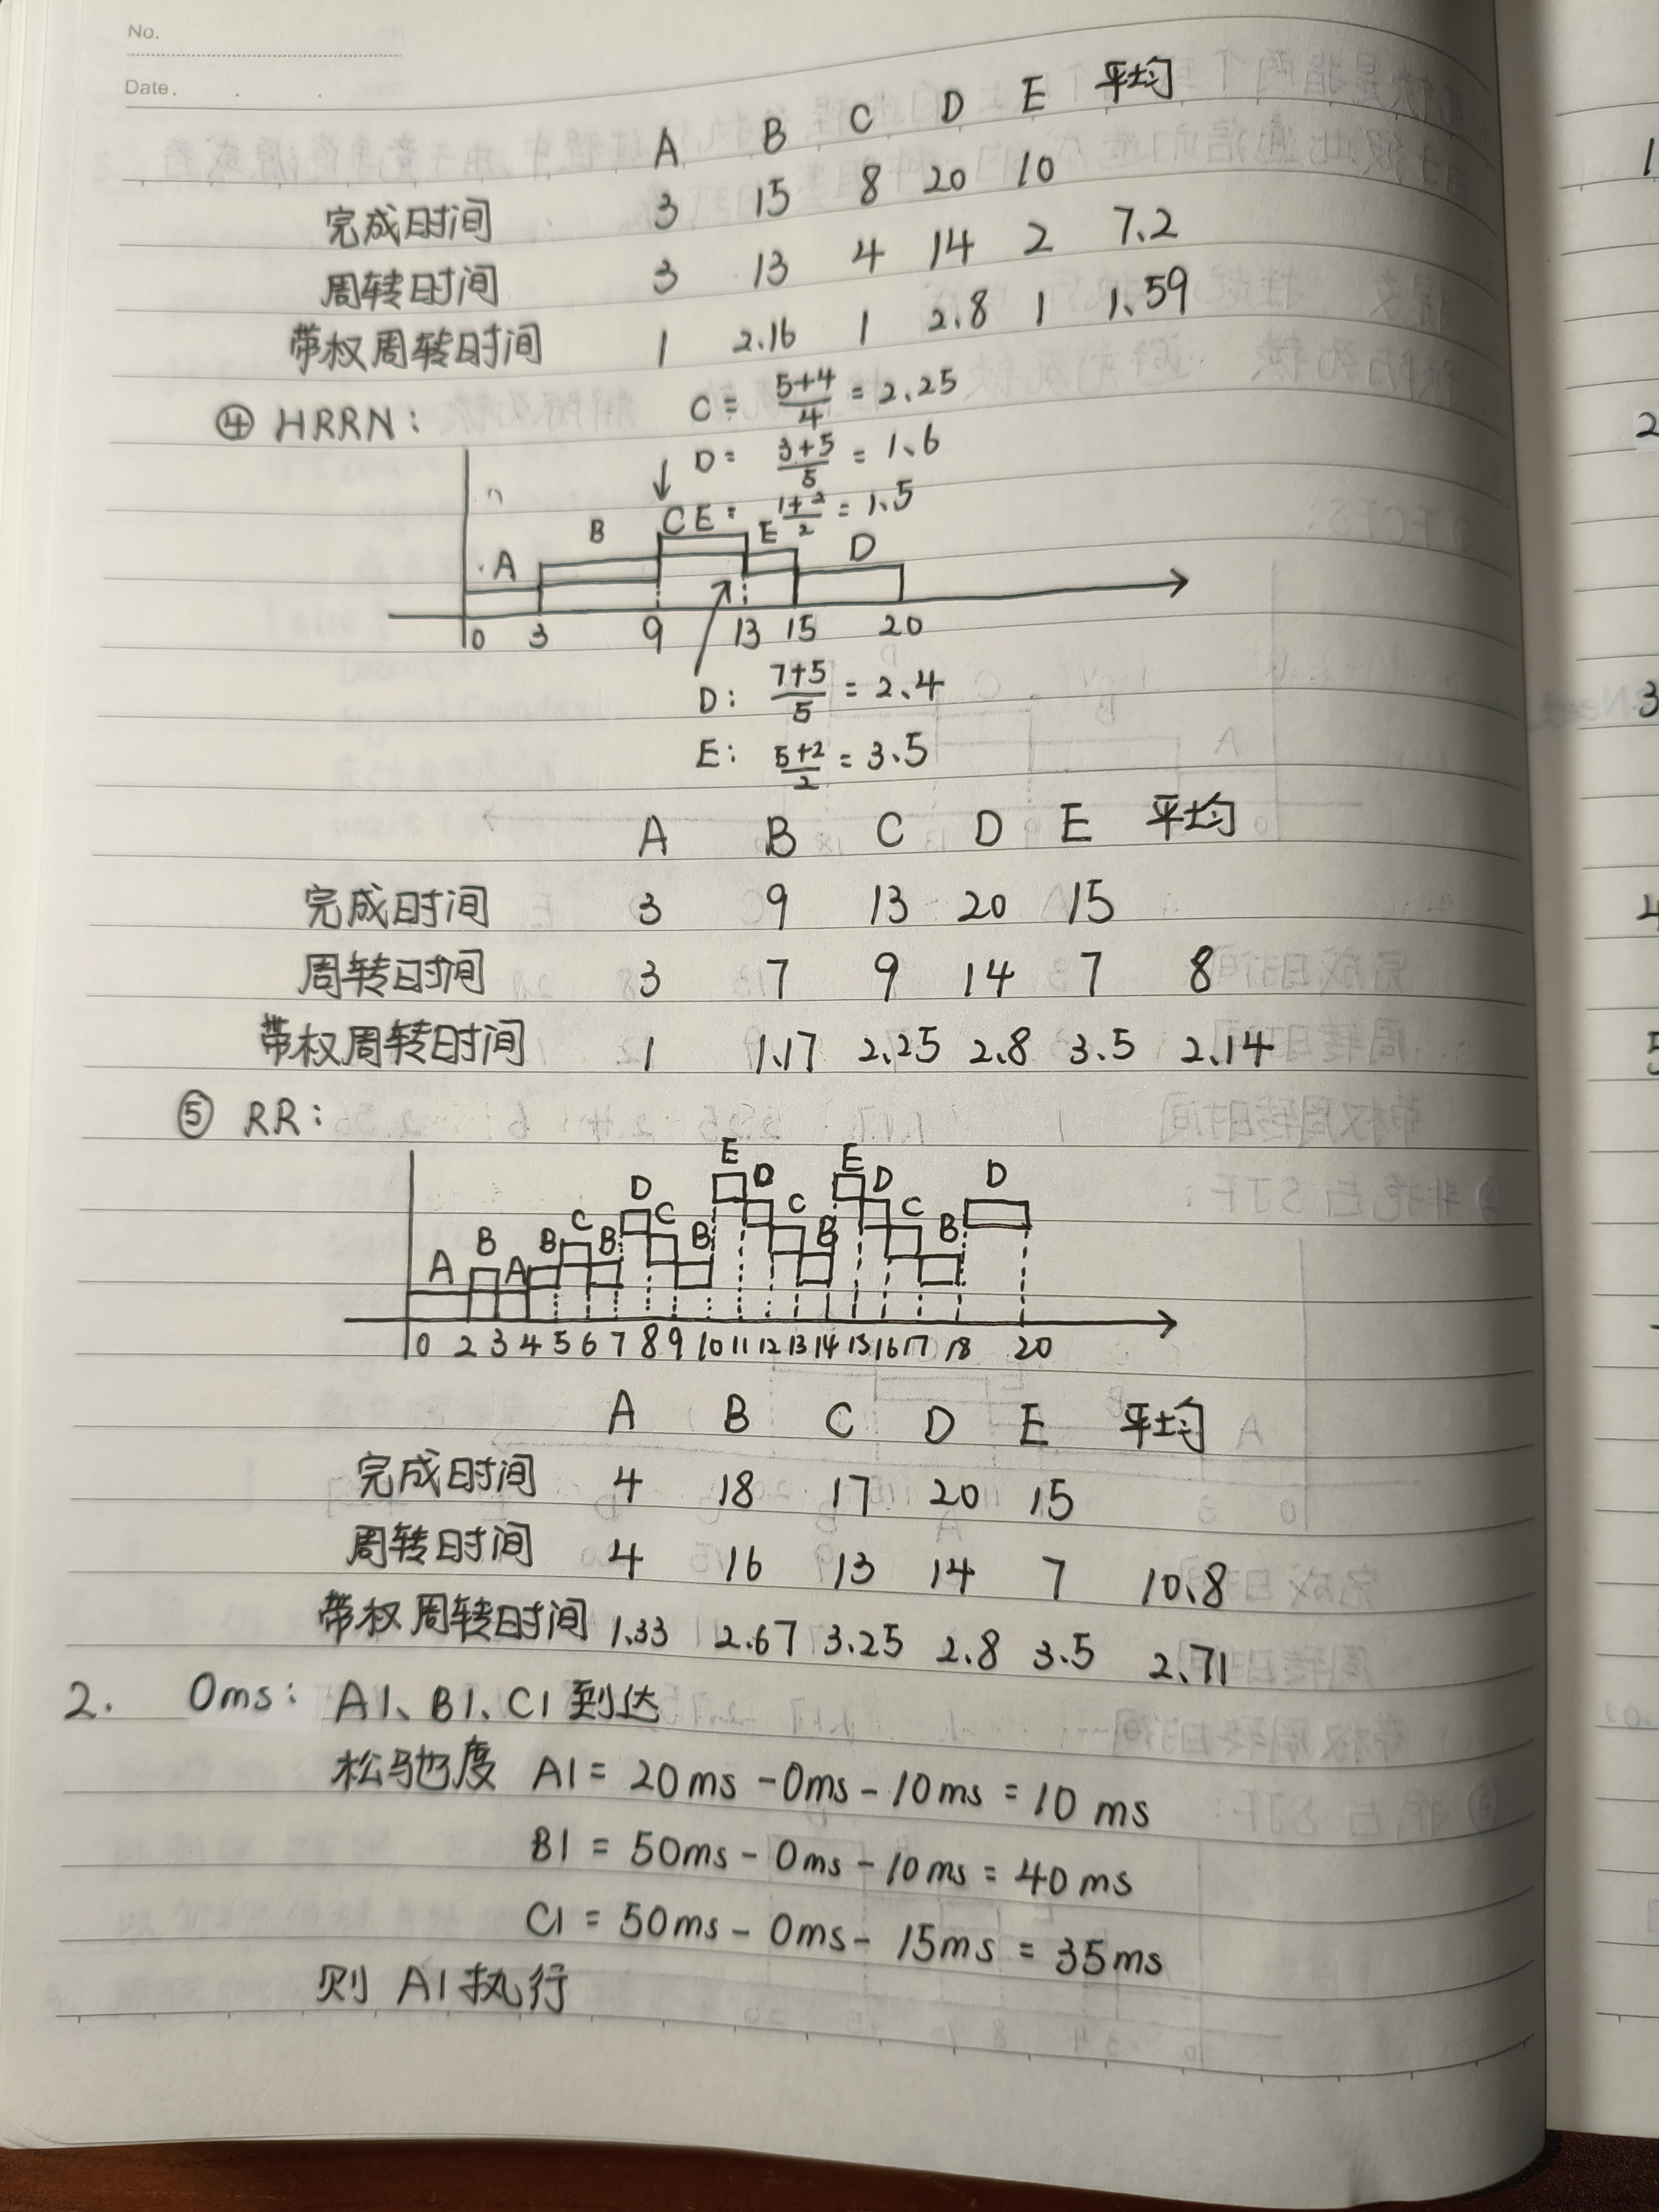 No.
Date.
A B C D E 平均
完成时间 3 15 8 20 10
周转时间 3 13 4 14 2 7.2
带权周转时间 1 2.16 1 2.8 1 1.59
④ HRRN:
C = (5+4)/4 = 2.25
D = (3+5)/5 = 1.6
E = (1+2)/2 = 1.5
A B C E D
0 3 9 13 15 20
D: (7+5)/5 = 2.4
E: (5+2)/2 = 3.5
A B C D E 平均
完成时间 3 9 13 20 15
周转时间 3 7 9 14 7 8
带权周转时间 1 1.17 2.25 2.8 3.5 2.14
⑤ RR:
A B A B C B D C B E D C B E D C B D
0 2 3 4 5 6 7 8 9 10 11 12 13 14 15 16 17 18 20
A B C D E 平均
完成时间 4 18 17 20 15
周转时间 4 16 13 14 7 10.8
带权周转时间 1.33 2.67 3.25 2.8 3.5 2.71
2. 0ms: A1、B1、C1 到达
松驰度 A1 = 20ms - 0ms - 10ms = 10 ms
B1 = 50ms - 0ms - 10ms = 40 ms
C1 = 50ms - 0ms - 15ms = 35ms
则 A1 执行
1
2
3
4
5